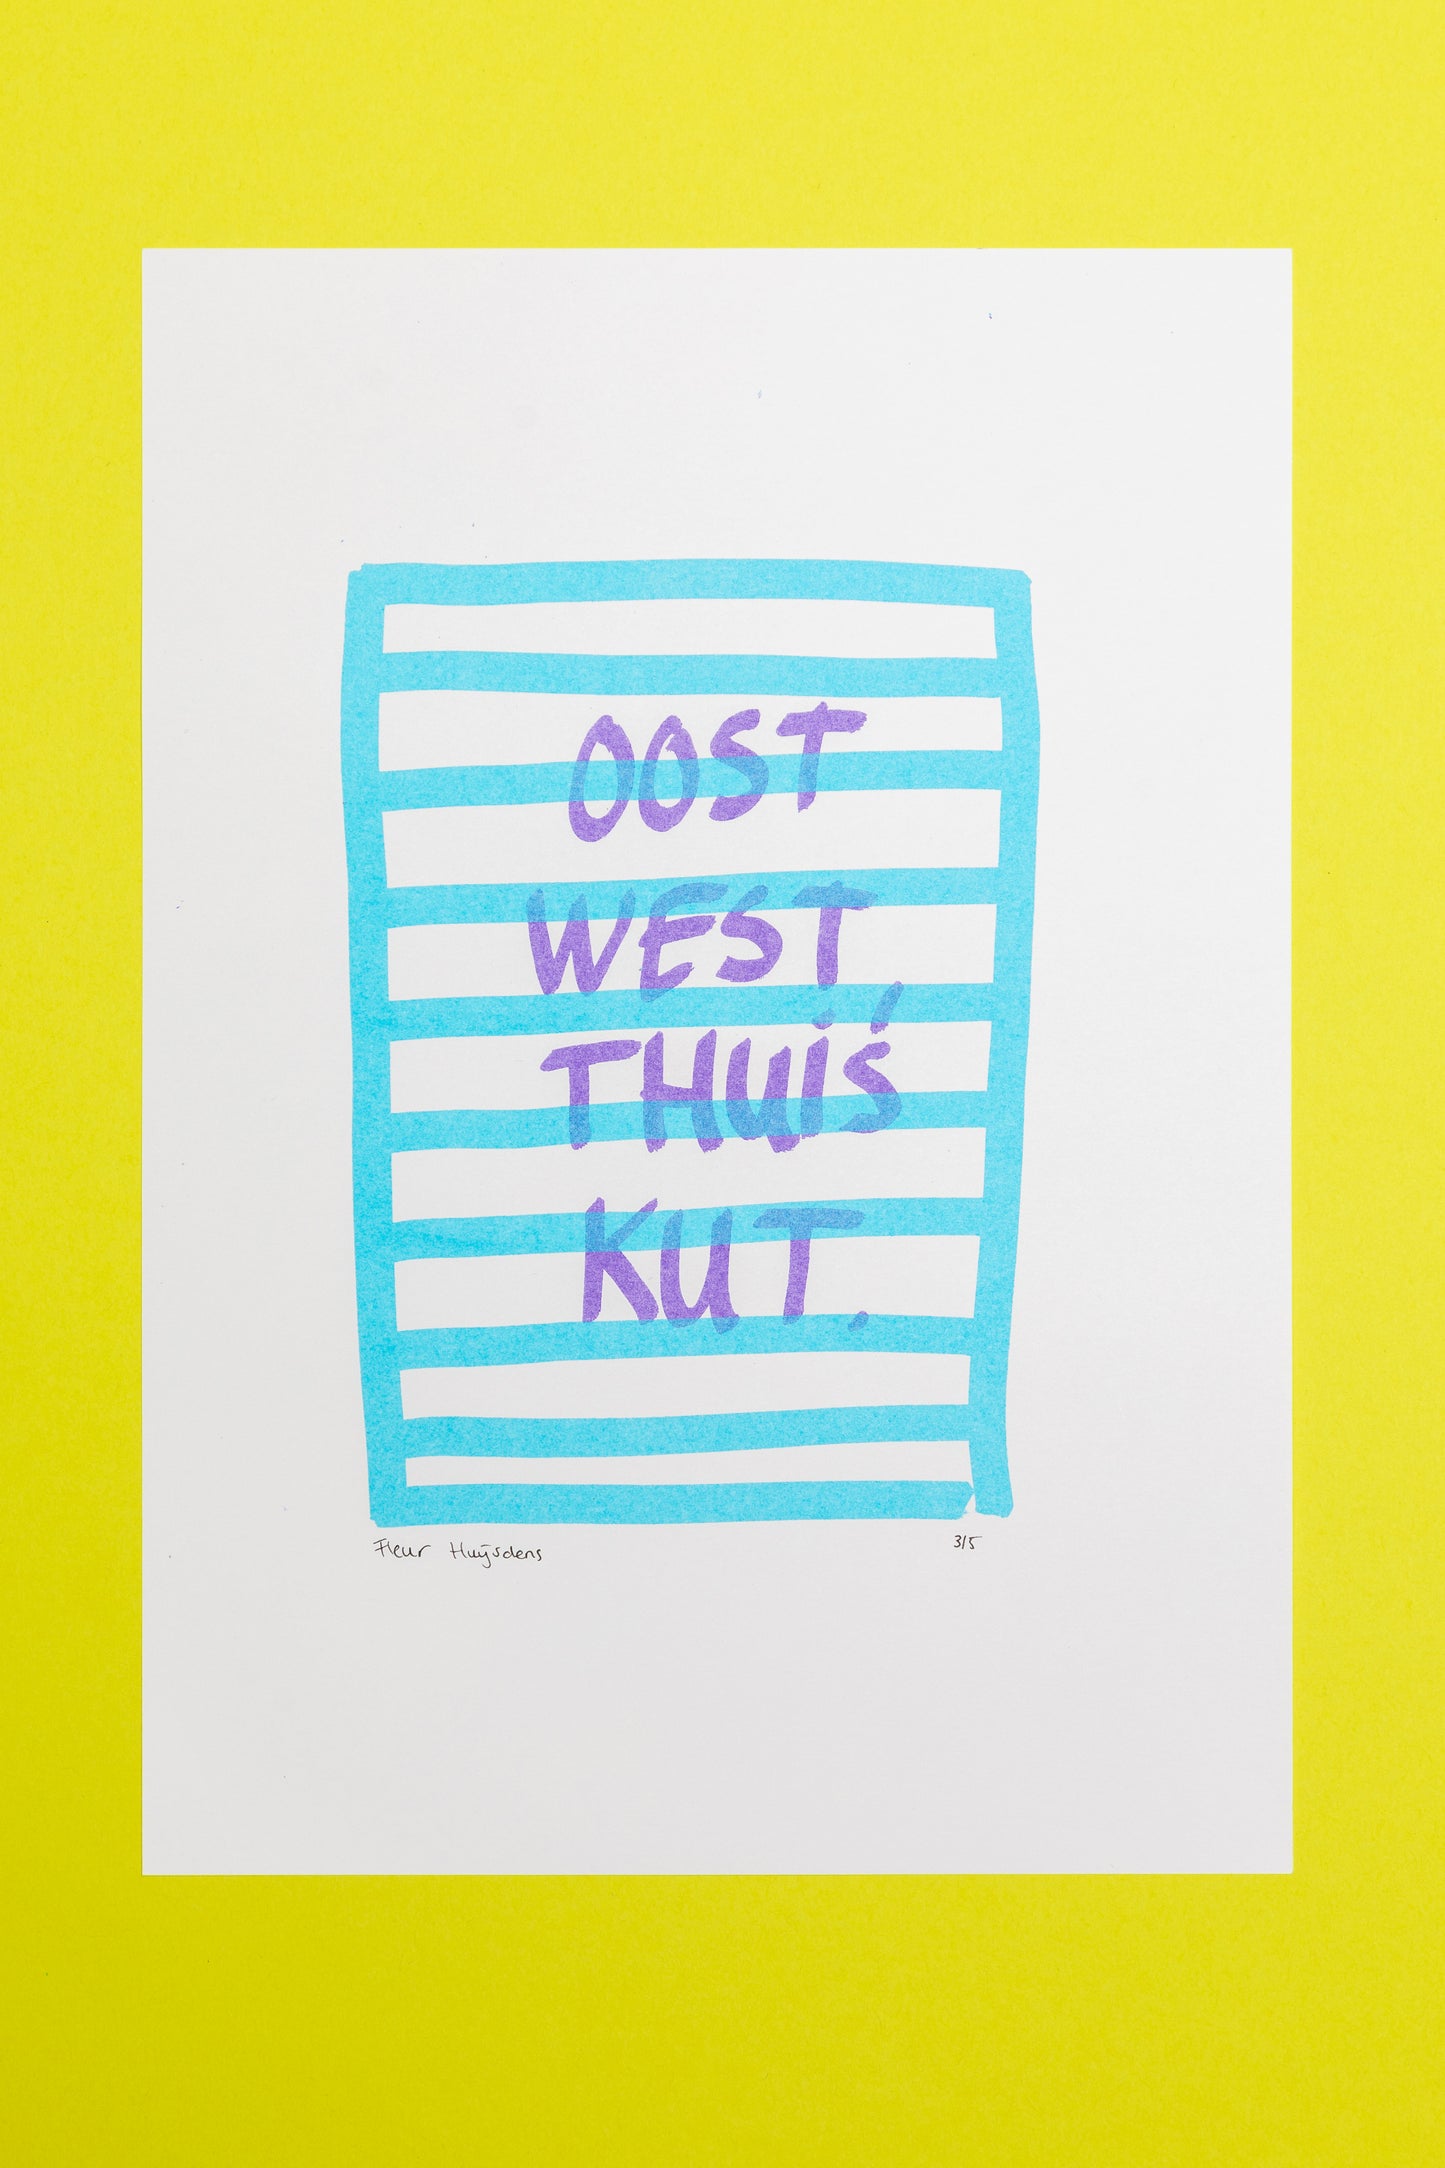 OOST
WEST,
THUiS
KUT.
Fleur Huijsdens
3/5